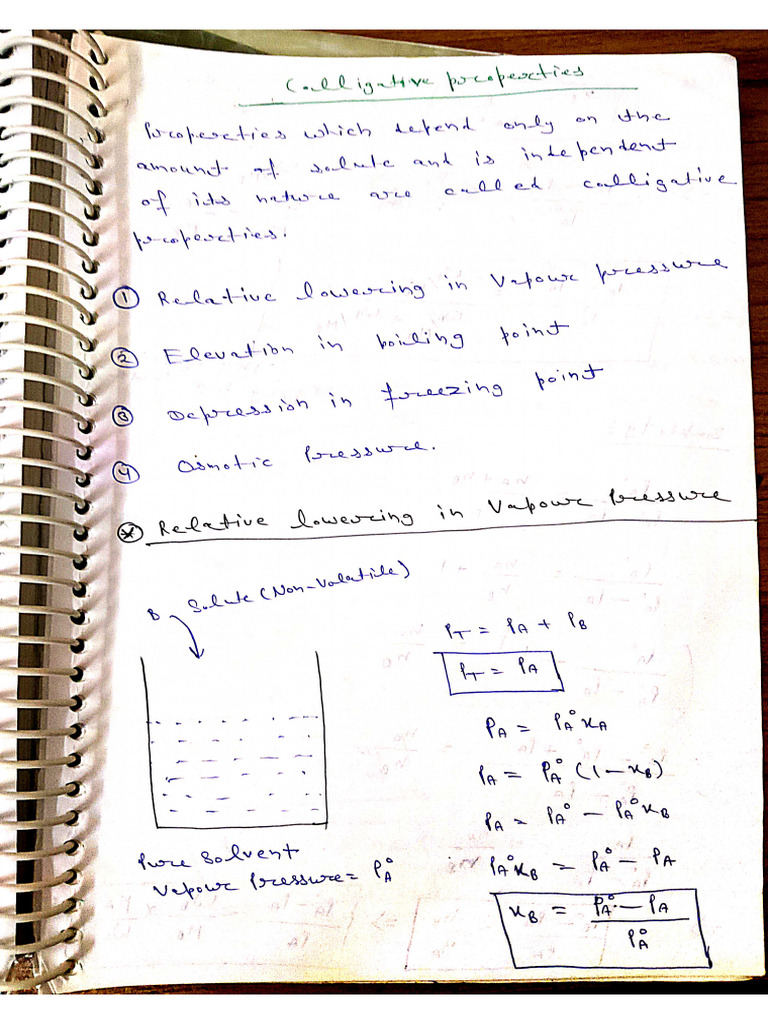 Calligative properties
Properties which depend only on the
amount of solute and is independent
of its nature are called calligative
properties.
① Relative lowering in Vapour pressure
② Elevation in boiling point
③ Depression in freezing point
④ Osmotic Pressure.
* Relative lowering in Vapour Pressure
B Solute (Non-Volatile)
P_T = P_A + P_B
P_T = P_A
P_A = P_A° x_A
P_A = P_A° (1 - x_B)
P_A = P_A° - P_A° x_B
Pure Solvent
Vapour Pressure = P_A°
P_A° x_B = P_A° - P_A
x_B = (P_A° - P_A) / P_A°